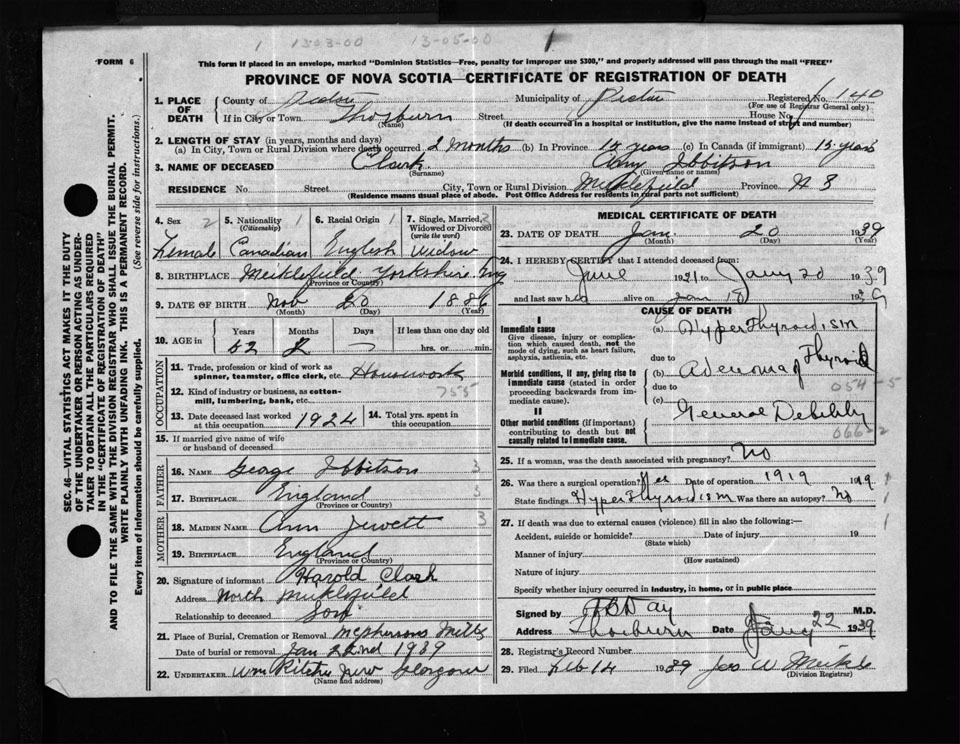 1 1303-00 13-05-00 1
FORM 6
This form if placed in an envelope, marked "Dominion Statistics—Free, penalty for improper use $300," and properly addressed will pass through the mail "FREE"
PROVINCE OF NOVA SCOTIA—CERTIFICATE OF REGISTRATION OF DEATH
SEC. 46—VITAL STATISTICS ACT MAKES IT THE DUTY
OF THE UNDERTAKER OR PERSON ACTING AS UNDER-
TAKER TO OBTAIN ALL THE PARTICULARS REQUIRED
IN THE "CERTIFICATE OF REGISTRATION OF DEATH"
AND TO FILE THE SAME WITH THE DIVISION REGISTRAR WHO SHALL ISSUE THE BURIAL PERMIT.
WRITE PLAINLY WITH UNFADING INK. THIS IS A PERMANENT RECORD.
Every item of information should be carefully supplied. (See reverse side for instructions.)
1. PLACE OF DEATH County of Pictou Municipality of Pictou Registered No. 140
(For use of Registrar General only)
If in City or Town Thorburn Street House No.
(Name) (If death occurred in a hospital or institution, give the name instead of street and number)
2. LENGTH OF STAY (in years, months and days)
(a) In City, Town or Rural Division where death occurred 2 months (b) In Province 15 years (c) In Canada (if immigrant) 15 years
3. NAME OF DECEASED Clark Amy Ibbitson
(Surname) (Given name or names)
RESIDENCE No. Street City, Town or Rural Division Micklefield Province N S
(Residence means usual place of abode. Post Office Address for residents in rural parts not sufficient)
4. Sex 2 5. Nationality 1 6. Racial Origin 1 7. Single, Married, 3
(Citizenship) Widowed or Divorced
(write the word)
Female Canadian English Widow
8. BIRTHPLACE Micklefield Yorkshire Eng
(Province or Country)
9. DATE OF BIRTH Nov 20 1886
(Month) (Day) (Year)
10. AGE in Years Months Days If less than one day old
52 2 hrs. or min.
OCCUPATION
11. Trade, profession or kind of work as
spinner, teamster, office clerk, etc. Housework
12. Kind of industry or business, as cotton-
mill, lumbering, bank, etc. 755
13. Date deceased last worked
at this occupation 1924
14. Total yrs. spent in
this occupation
15. If married give name of wife
or husband of deceased
FATHER
16. NAME George Ibbitson 3
17. BIRTHPLACE England 3
(Province or Country)
MOTHER
18. MAIDEN NAME Ann Jewett 3
19. BIRTHPLACE England
(Province or Country)
20. Signature of informant Harold Clark
Address North Micklefield
Relationship to deceased Son
21. Place of Burial, Cremation or Removal McPhersons Mills
Date of burial or removal Jan 22nd 1939
22. UNDERTAKER Wm Ritchie New Glasgow
(Name and address)
MEDICAL CERTIFICATE OF DEATH
23. DATE OF DEATH Jan. 20 1939
(Month) (Day) (Year)
24. I HEREBY CERTIFY that I attended deceased from:
June 1921 to Jany 20 1939
and last saw her alive on Jan 18 1939
CAUSE OF DEATH
I
Immediate cause
Give disease, injury or complica-
tion which caused death, not the
mode of dying, such as heart failure,
asphyxia, asthenia, etc.
(a) HyperThyroidism
due to
Morbid conditions, if any, giving rise to
immediate cause (stated in order
proceeding backwards from im-
mediate cause).
(b) Adenoma of Thyroid
due to 054-5
(c)
II
Other morbid conditions (if important)
contributing to death but not
causally related to immediate cause.
General Debility
066-2
25. If a woman, was the death associated with pregnancy? No
26. Was there a surgical operation? Yes Date of operation 1919 19 1
State findings HyperThyroidism Was there an autopsy? No 1
27. If death was due to external causes (violence) fill in also the following:— 1
Accident, suicide or homicide? Date of injury 19
(State which)
Manner of injury
(How sustained)
Nature of injury
Specify whether injury occurred in industry, in home, or in public place
Signed by Day M.D.
Address Thorburn Date Jany 22 1939
28. Registrar's Record Number
29. Filed Feb 14 1939 Jas W Meikle
(Division Registrar)